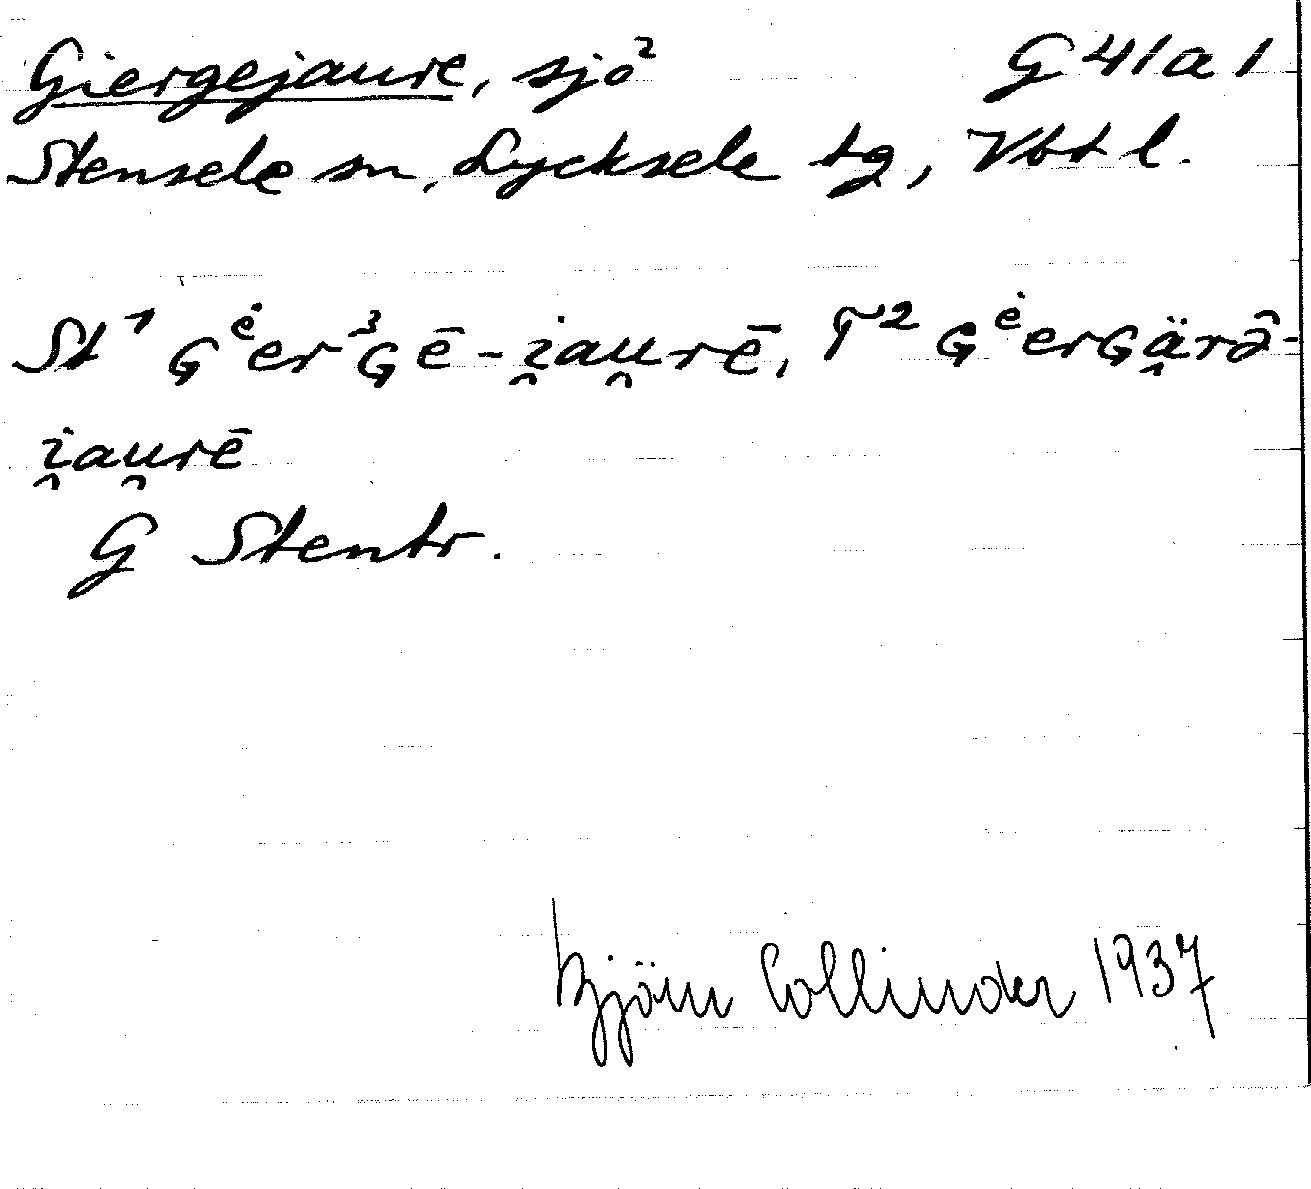 Giergejaure, sjö² G 41 a 1
Stensele sn, Lycksele tg, Vbt l.
St¹ Gᵉ̇er³Gē-i̯au̯rē, T² Gᵉ̇erGä̯rə̂-
i̯au̯rē
G Stentr.
Björn Collinder 1937